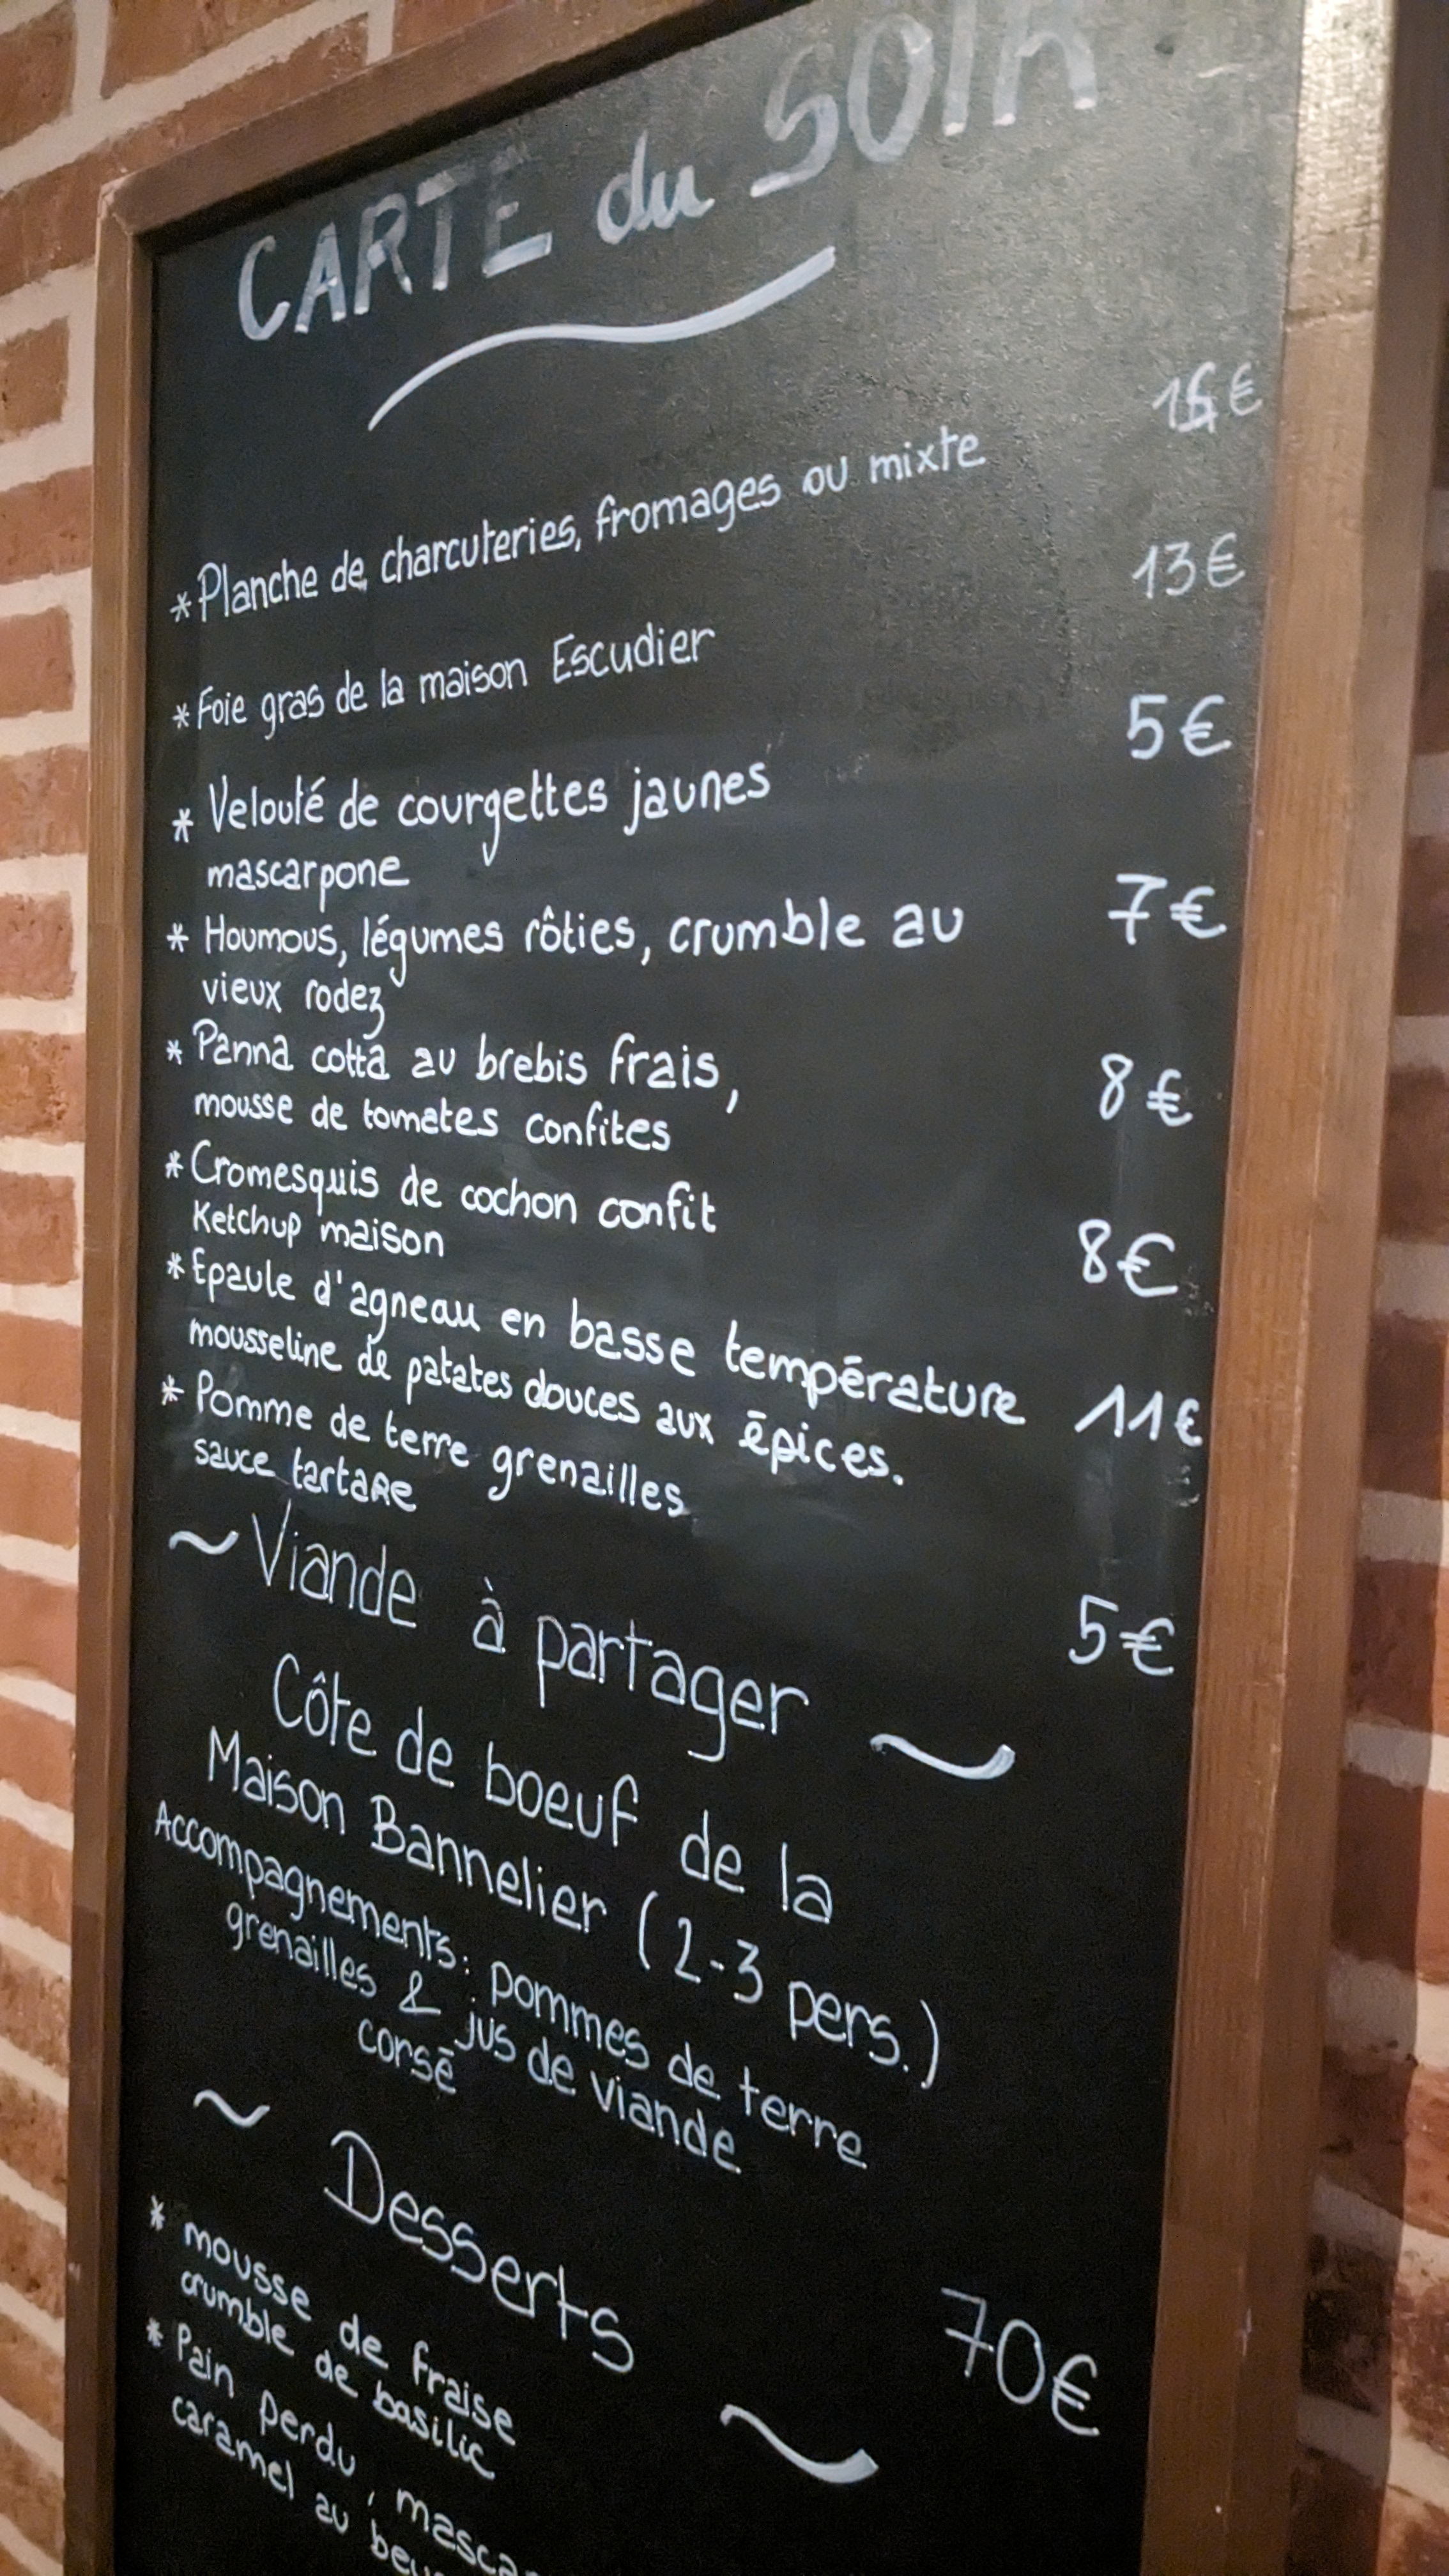 CARTE du SOIR
* Planche de charcuteries, fromages ou mixte €
* Foie gras de la maison Escudier 13€
* Velouté de courgettes jaunes 5€
mascarpone
* Houmous, légumes rôties, crumble au 7€
vieux rodez
* Panna cotta au brebis frais, 8€
mousse de tomates confites
* Cromesquis de cochon confit 8€
Ketchup maison
* Epaule d'agneau en basse température 11€
mousseline de patates douces aux épices.
* Pomme de terre grenailles 5€
sauce tartare
~ Viande à partager ~
Côte de boeuf de la
Maison Bannelier (2-3 pers.)
Accompagnements: pommes de terre
grenailles & jus de viande
corsé
70€
~ Desserts ~
* mousse de fraise
crumble de basilic
* Pain perdu,
caramel au